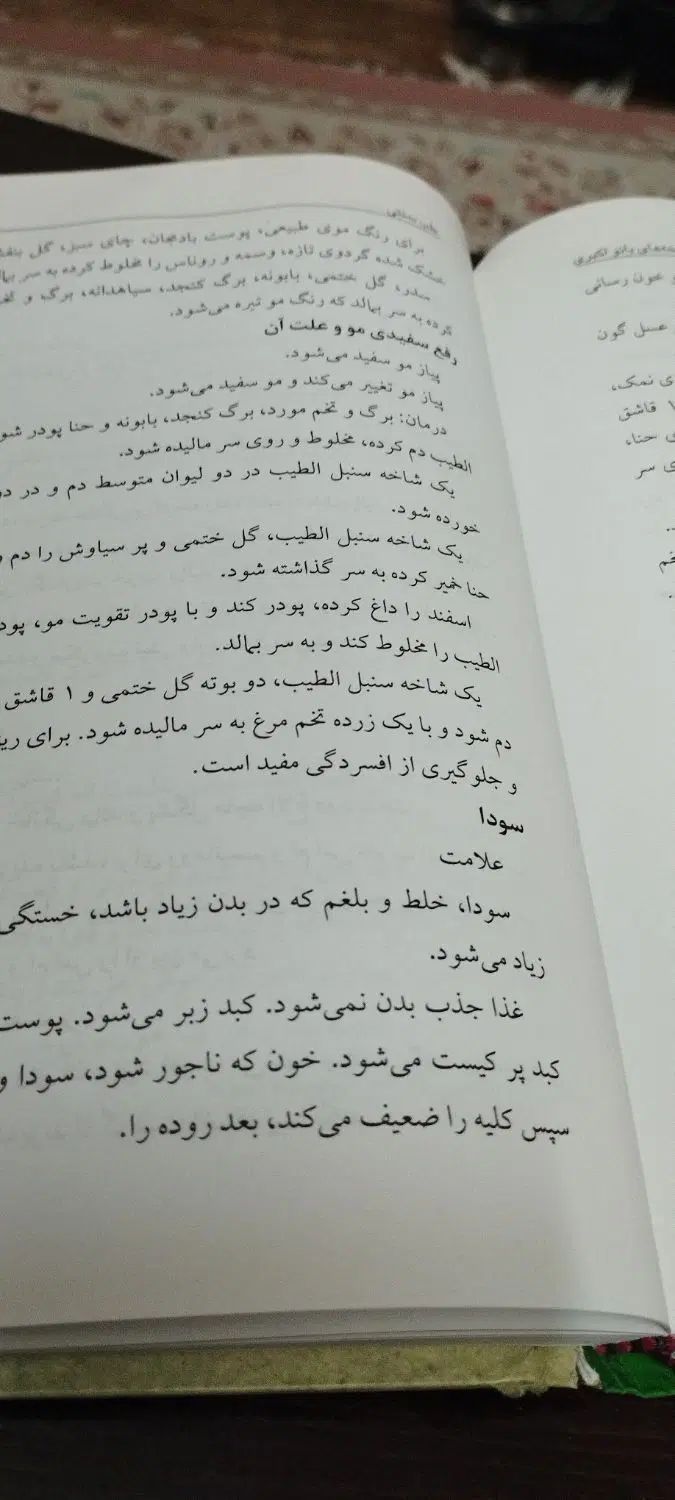 برای رنگ موی طبیعی، پوست بادمجان، چای سبز، گل بنفشه
خشک شده گردوی تازه، وسمه و روناس را مخلوط کرده به سر بمالد
سدر، گل ختمی، بابونه، برگ کنجد، سیاهدانه، برگ و تخم
کرده به سر بمالد که رنگ مو تیره می‌شود.
رفع سفیدی مو و علت آن
پیاز مو سفید می‌شود.
پیاز مو تغییر می‌کند و مو سفید می‌شود.
درمان: برگ و تخم مورد، برگ کنجد، بابونه و حنا پودر شود
الطیب دم کرده، مخلوط و روی سر مالیده شود.
یک شاخه سنبل الطیب در دو لیوان متوسط دم و در
خورده شود.
یک شاخه سنبل الطیب، گل ختمی و پر سیاوش را دم
حنا خمیر کرده به سر گذاشته شود.
اسفند را داغ کرده، پودر کند و با پودر تقویت مو، پود
الطیب را مخلوط کند و به سر بمالد.
یک شاخه سنبل الطیب، دو بوته گل ختمی و ۱ قاشق
دم شود و با یک زرده تخم مرغ به سر مالیده شود. برای
و جلوگیری از افسردگی مفید است.
سودا
علامت
سودا، خلط و بلغم که در بدن زیاد باشد، خستگی
زیاد می‌شود.
غذا جذب بدن نمی‌شود. کبد زبر می‌شود. پوست
کبد پر کیست می‌شود. خون که ناجور شود، سودا و
سپس کلیه را ضعیف می‌کند، بعد روده را.
خون رسانی
عسل گون
ی نمک،
۱ قاشق
حنا،
ی سر